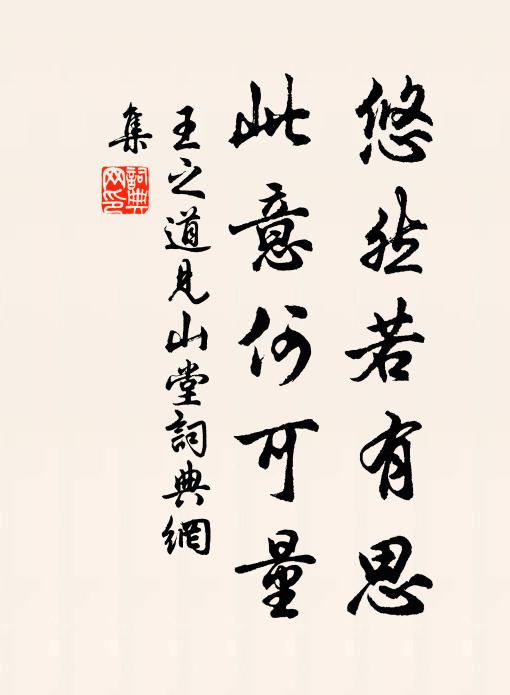 悠然若有思
此意何可量
王之道見山堂詞典網
集
詞典
网印